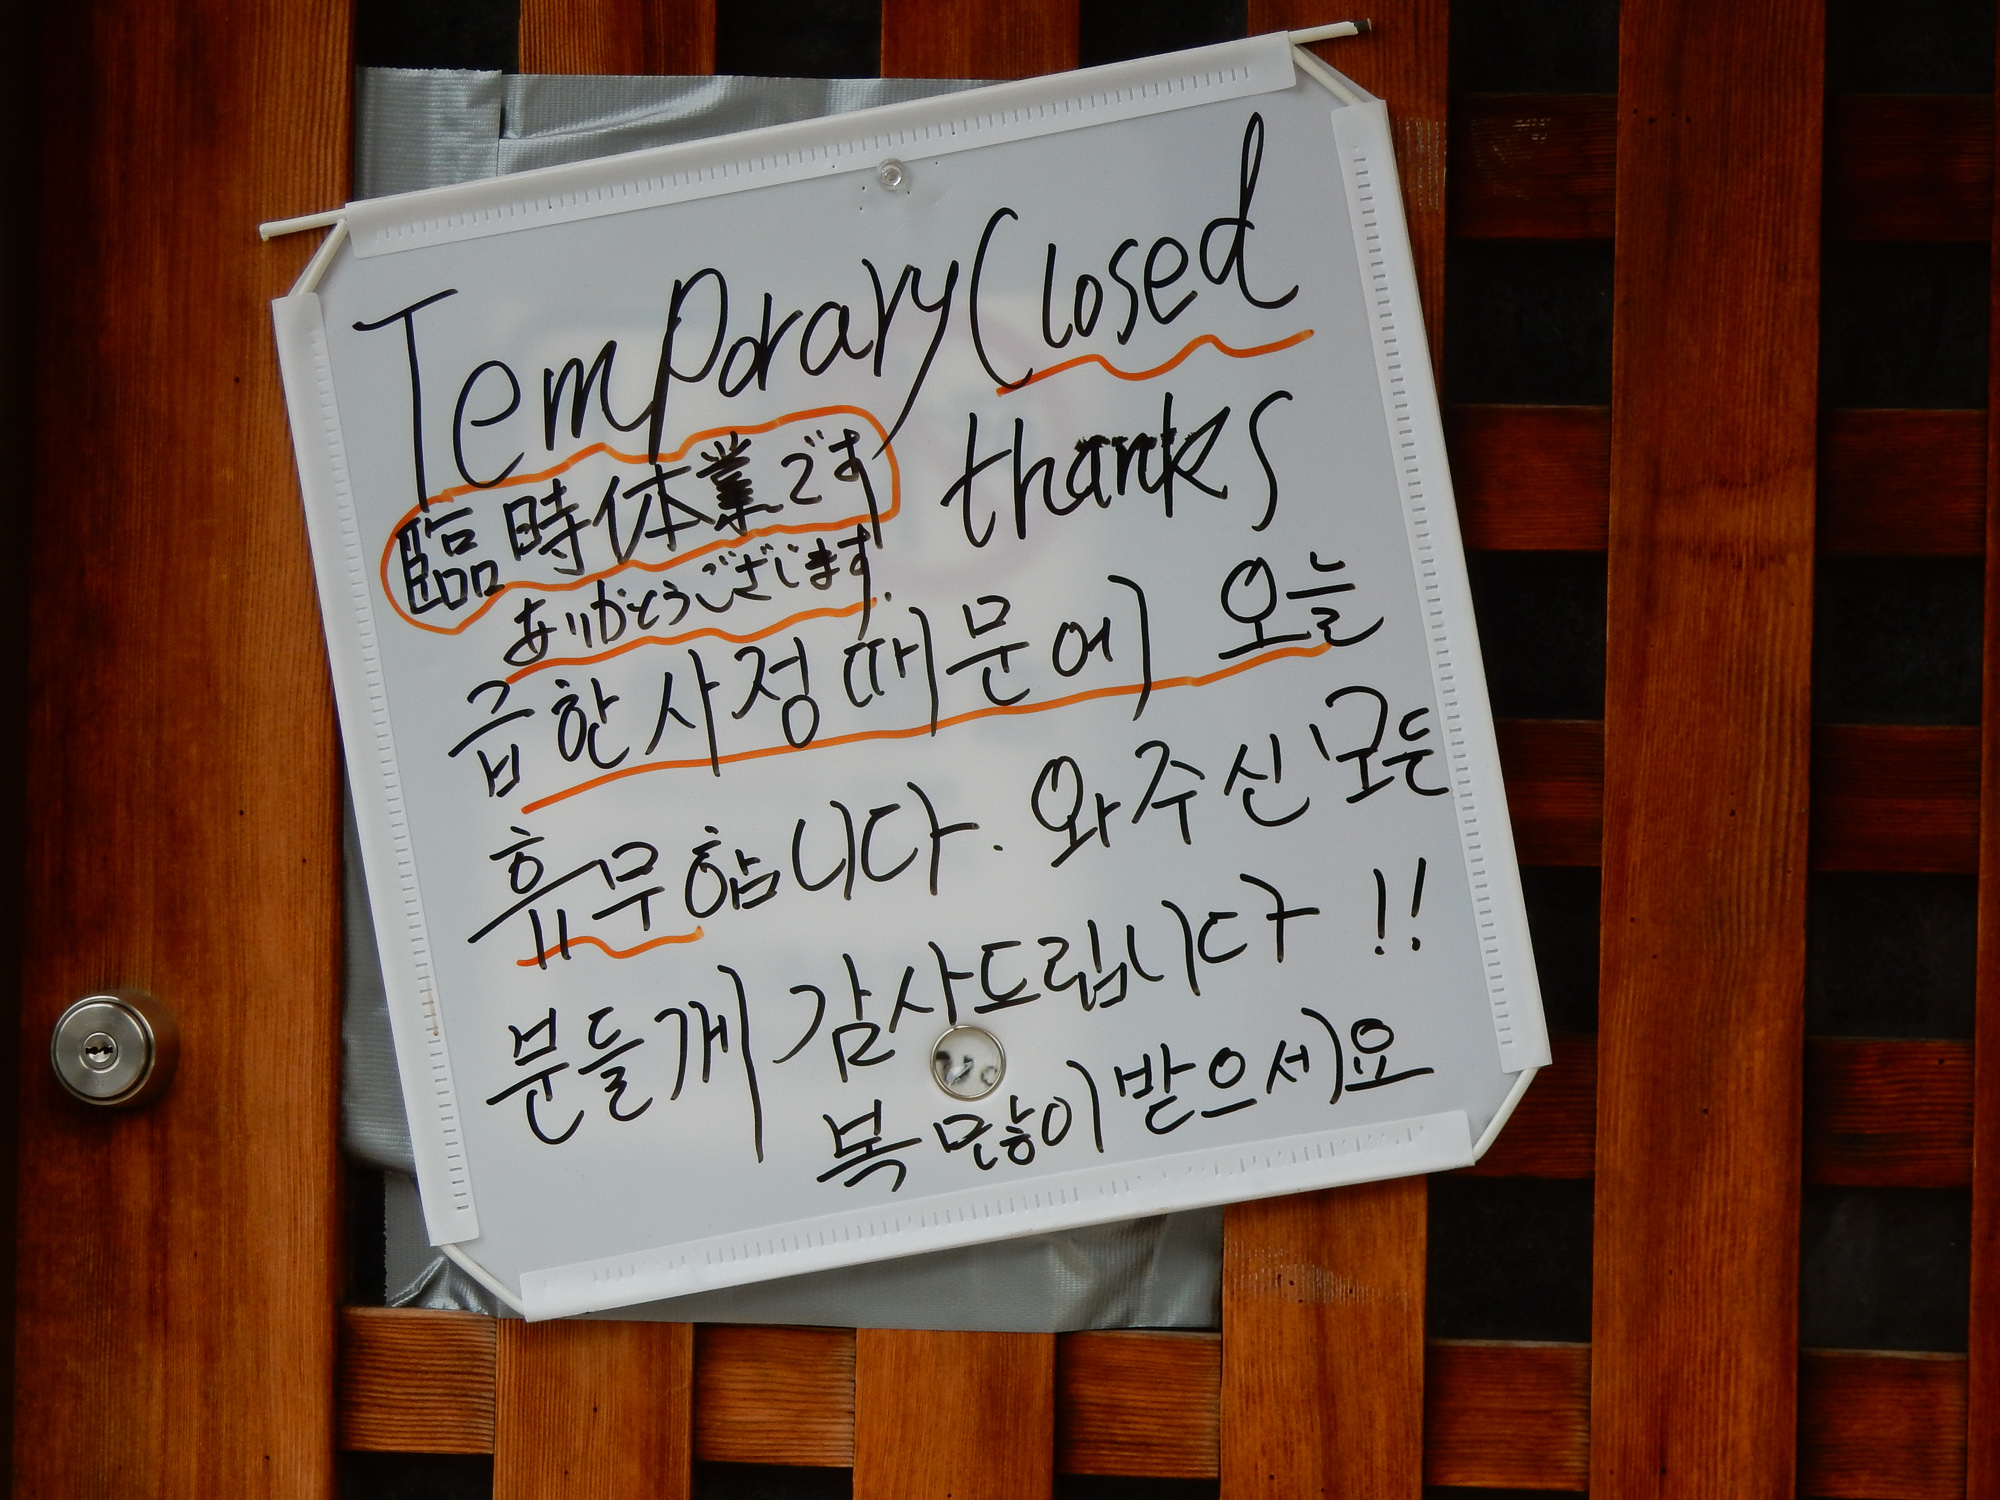 Temporary Closed
thanks
臨時休業です
ありがとうございます.
급한 사정 때문에 오늘
휴무합니다. 와주신 모든
분들께 감사드립니다!!
복 많이 받으세요